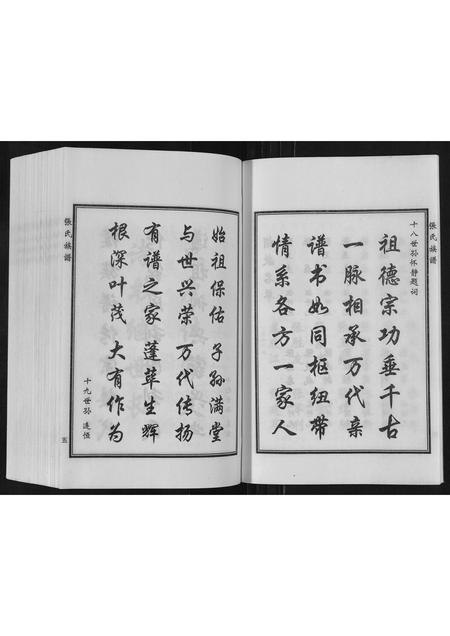 張氏族譜
十八世孙怀静题词
祖德宗功垂千古
一脉相承万代亲
谱书如同枢纽带
情系各方一家人
始祖保佑子孙满堂
与世兴荣万代传扬
有谱之家蓬荜生辉
根深叶茂大有作为
十九世孙 连恒
張氏族譜
五